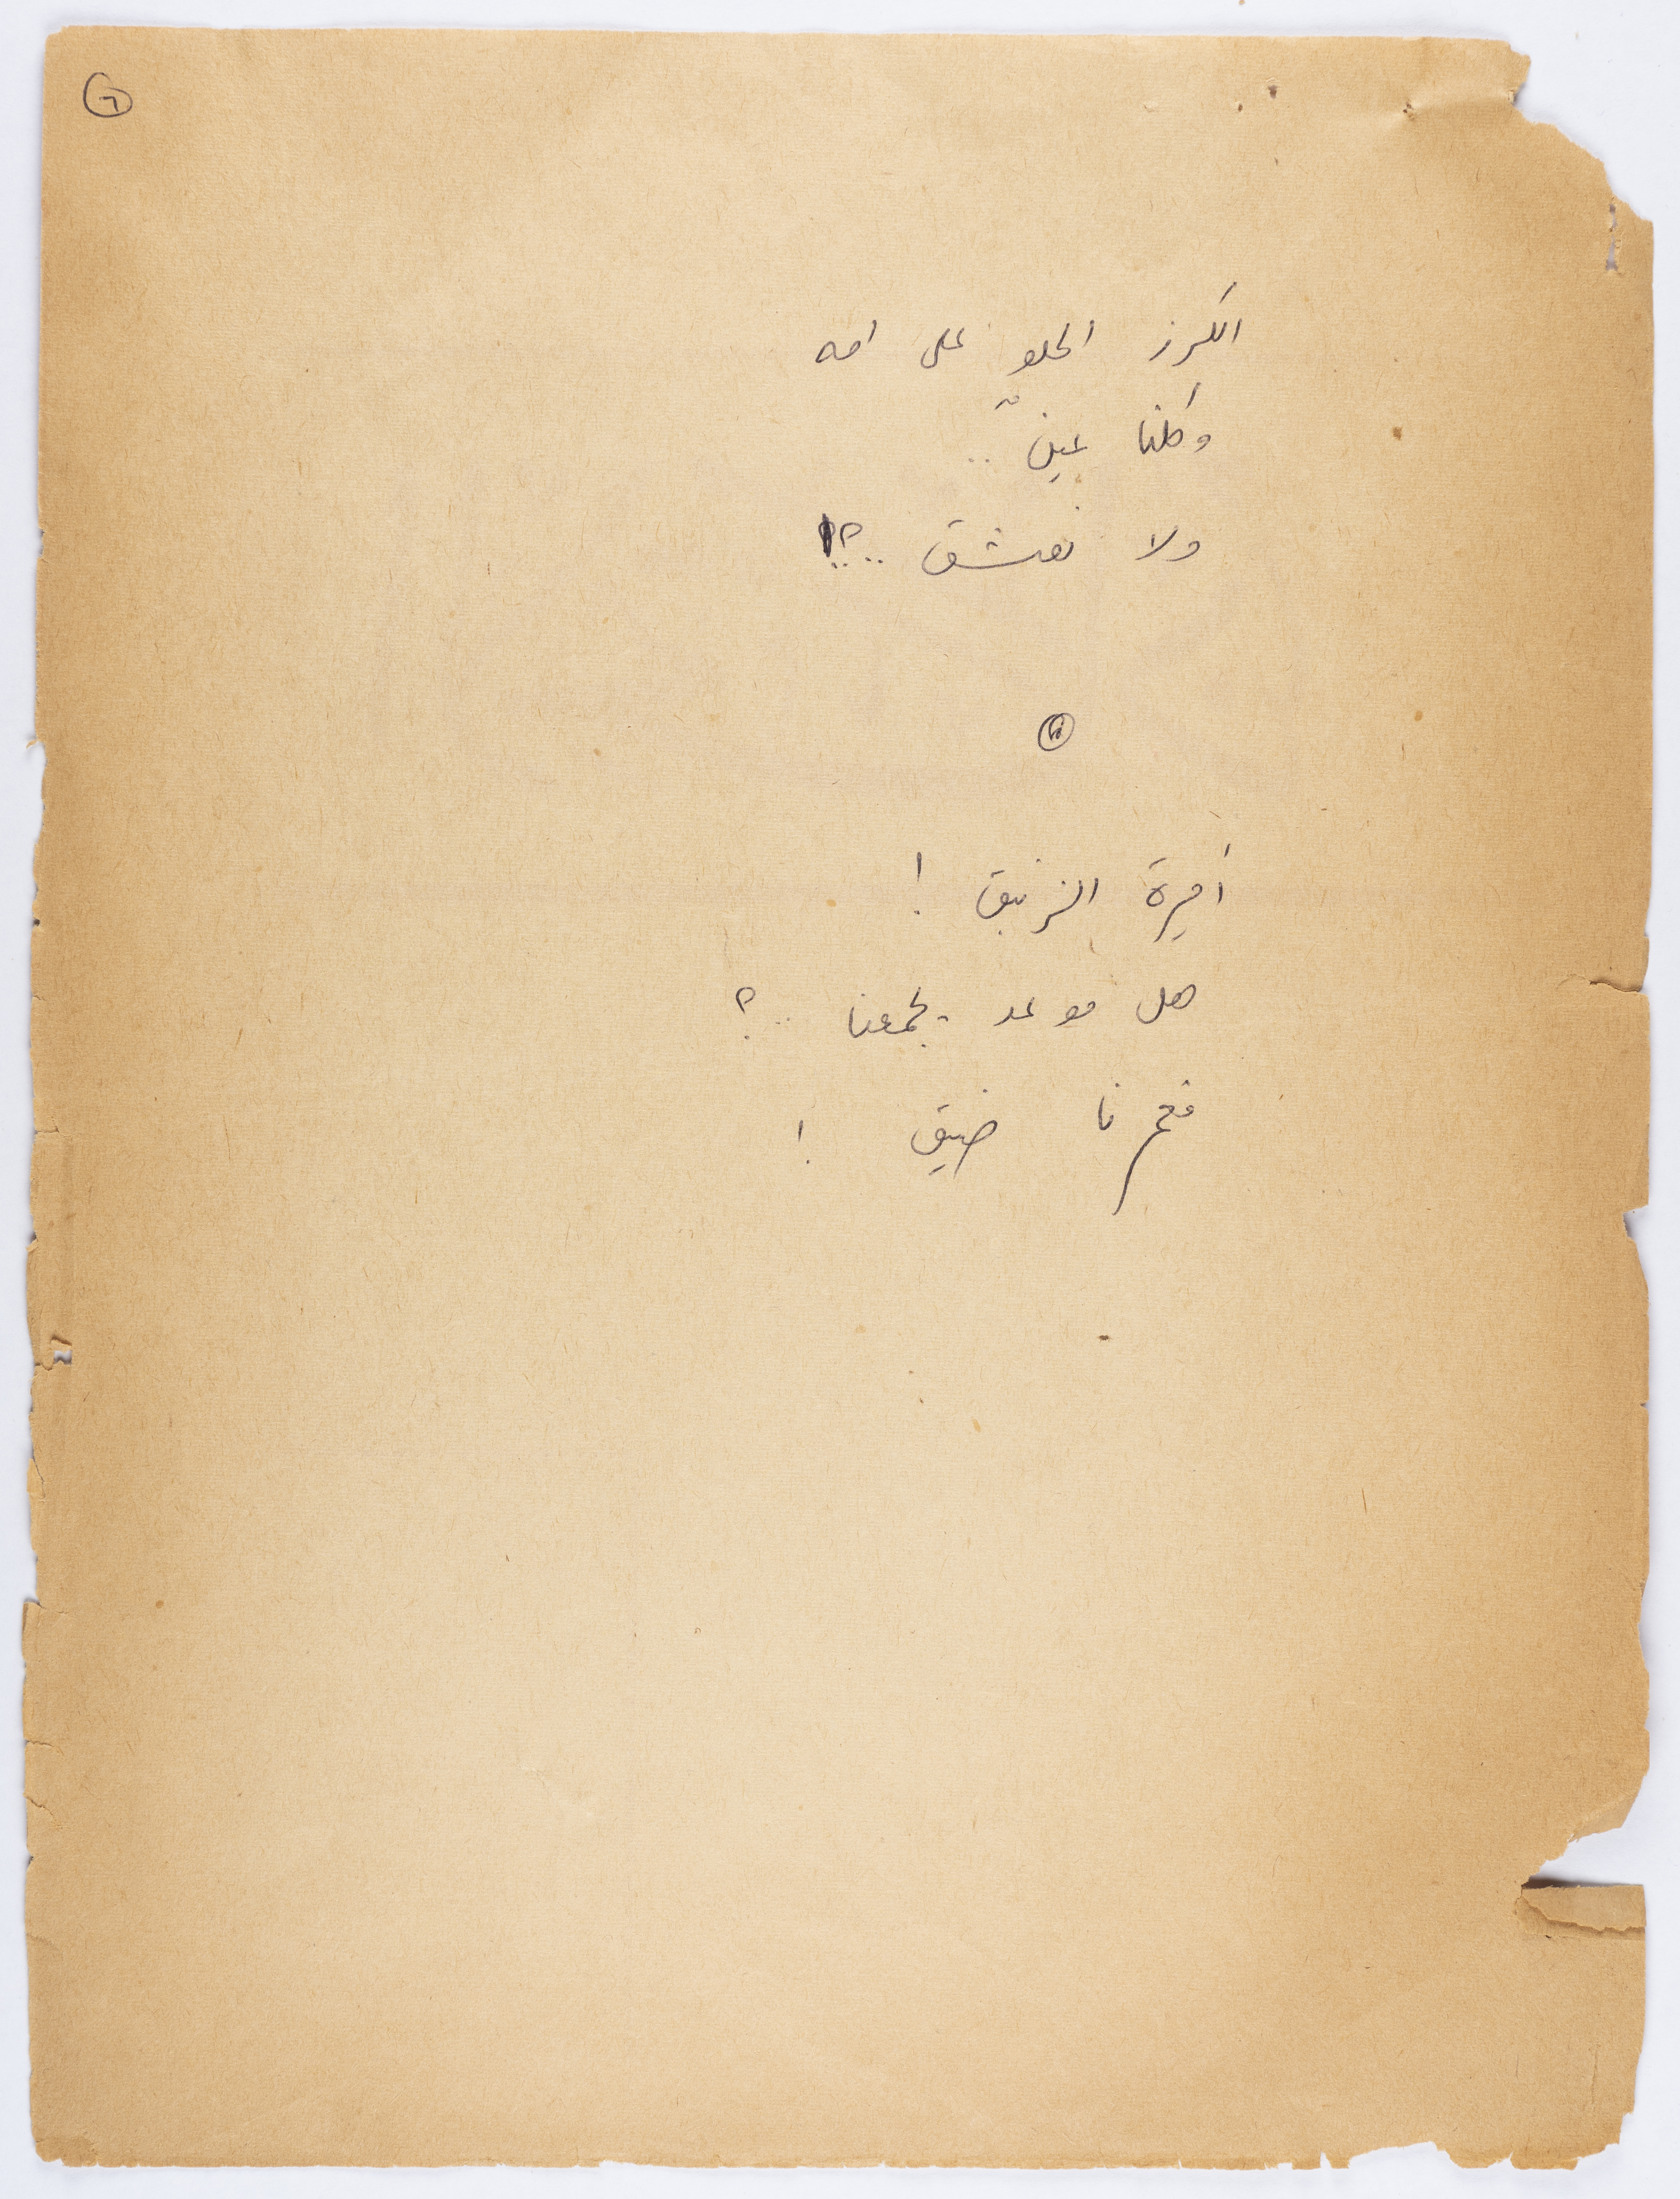 ٦
الكرز الحلو على امه
وكلنا عينٌ ..
ولا نعشق ..؟!
أميرة الزنبق !
هل موعد يجمعنا ..؟
فعمرنا ضيق !